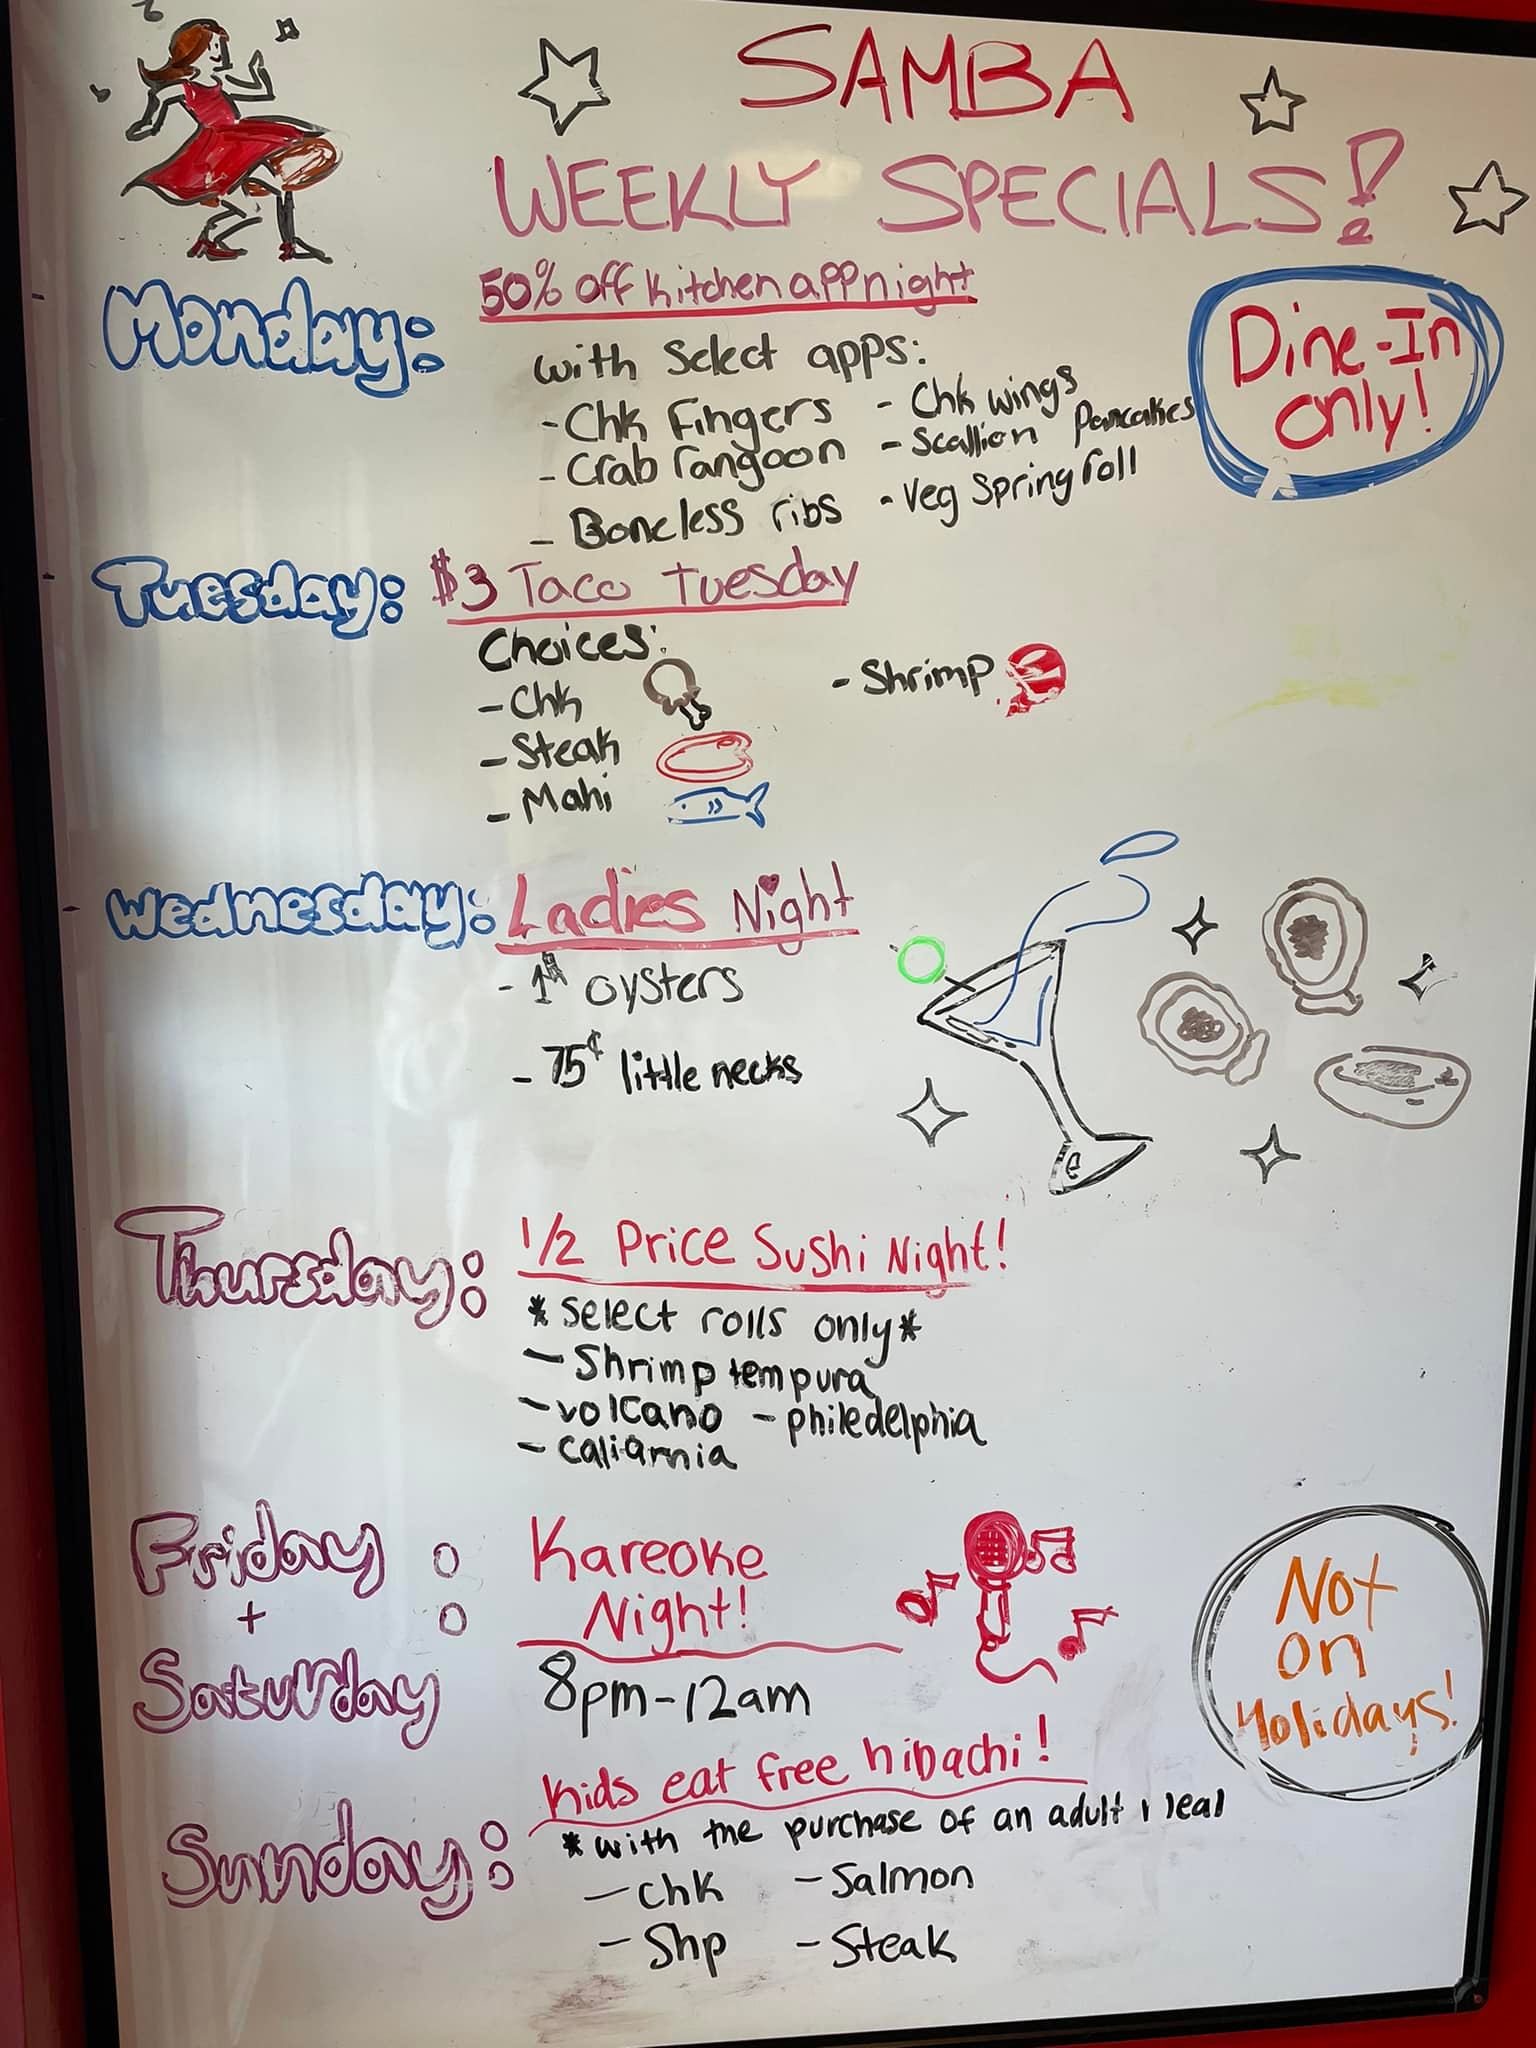 SAMBA
WEEKLY SPECIALS!
Monday:
50% off Kitchen app night
Dine-In
only!
with Select apps:
- Chk Fingers - Chk wings
- Crab rangoon - Scallion Pancakes
- Boneless ribs - Veg Spring roll
Tuesday:
$3 Taco Tuesday
Choices:
- Chk - Shrimp
- Steak
- Mahi
Wednesday:
Ladies Night
- 1$ oysters
- 75¢ little necks
Thursday:
1/2 Price Sushi Night!
*Select rolls only*
- Shrimp tempura
- volcano - philedelphia
- califarnia
Friday
+
Saturday :
Kareoke
Night!
8pm-12am
Not
on
Holidays!
Sunday:
Kids eat free hibachi!
*with the purchase of an adult meal
- Chk - Salmon
- Shp - Steak